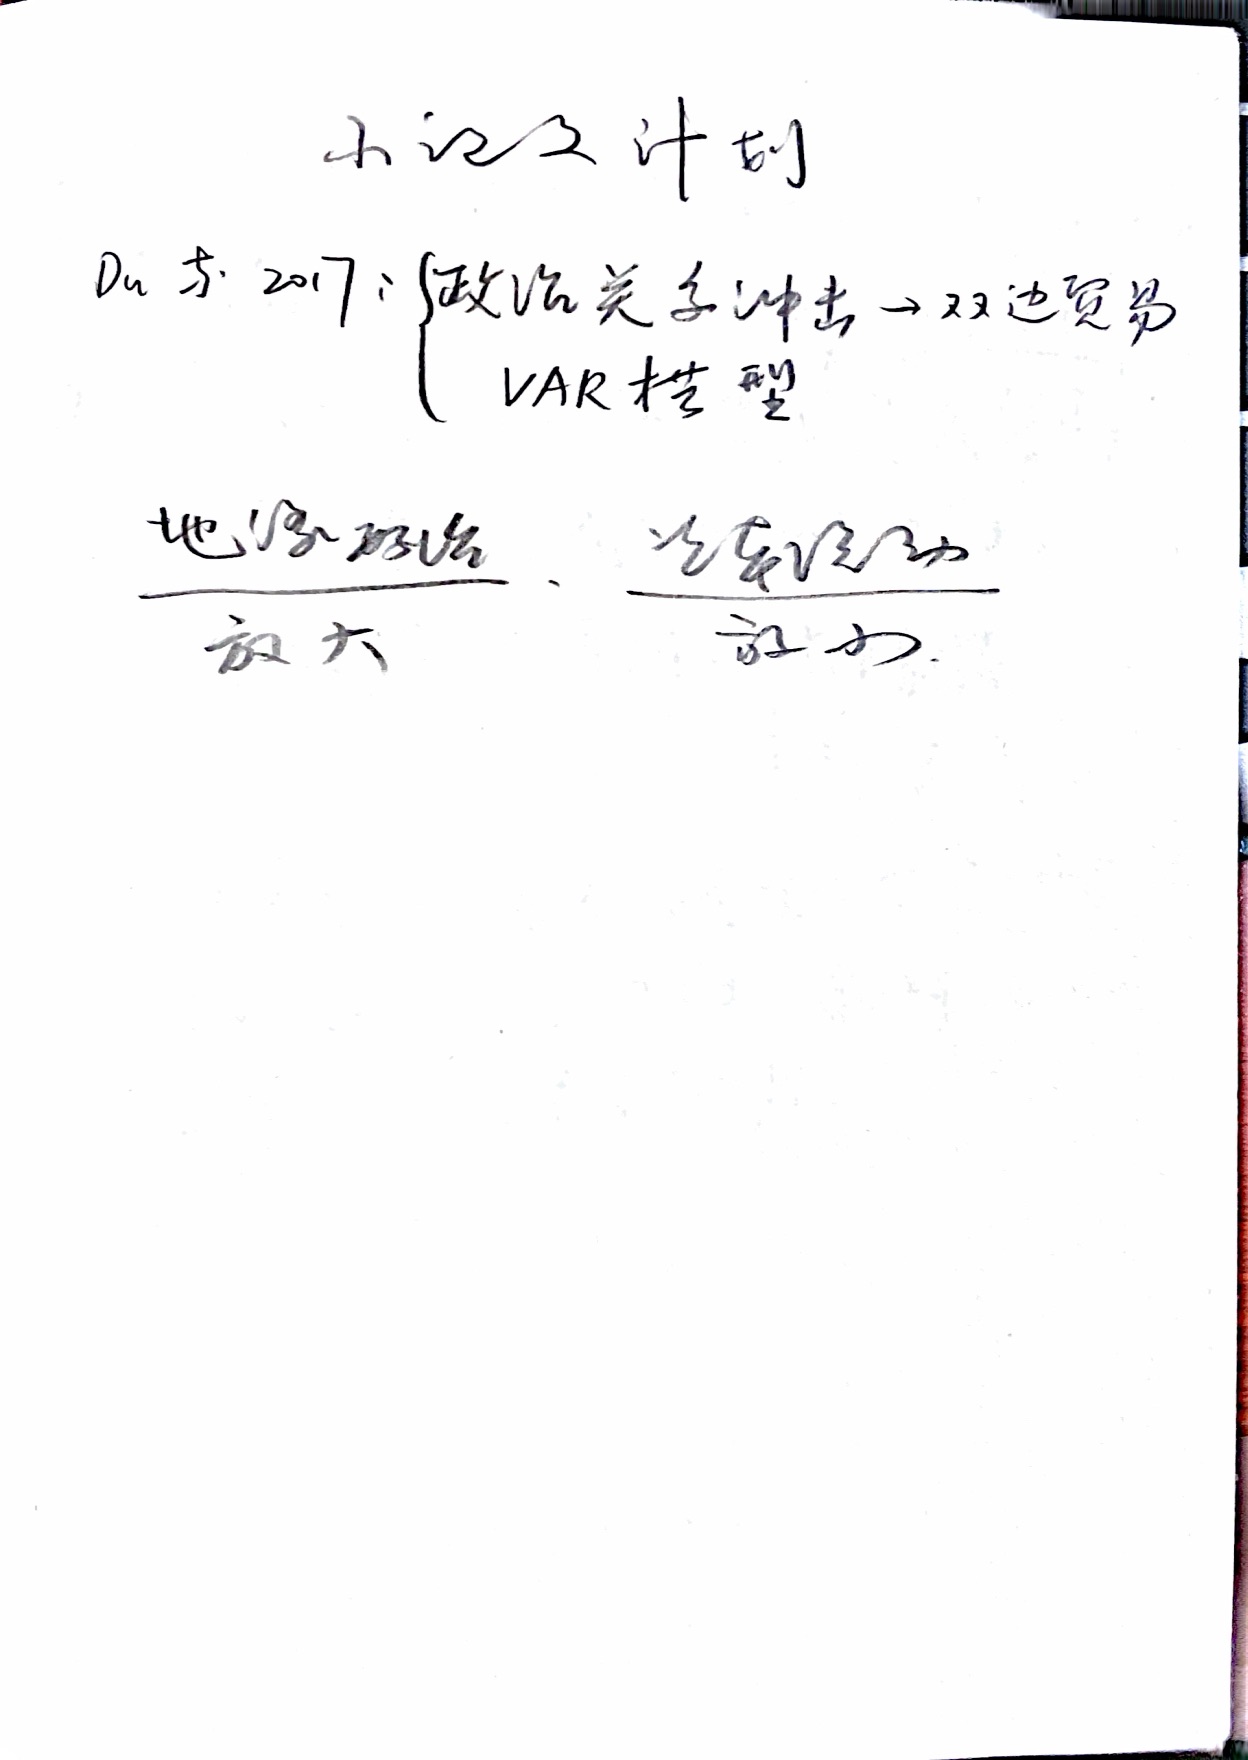 小论文计划
Du 等 2017：政治关系冲击→双边贸易
VAR模型
地缘政治
放大
放小.